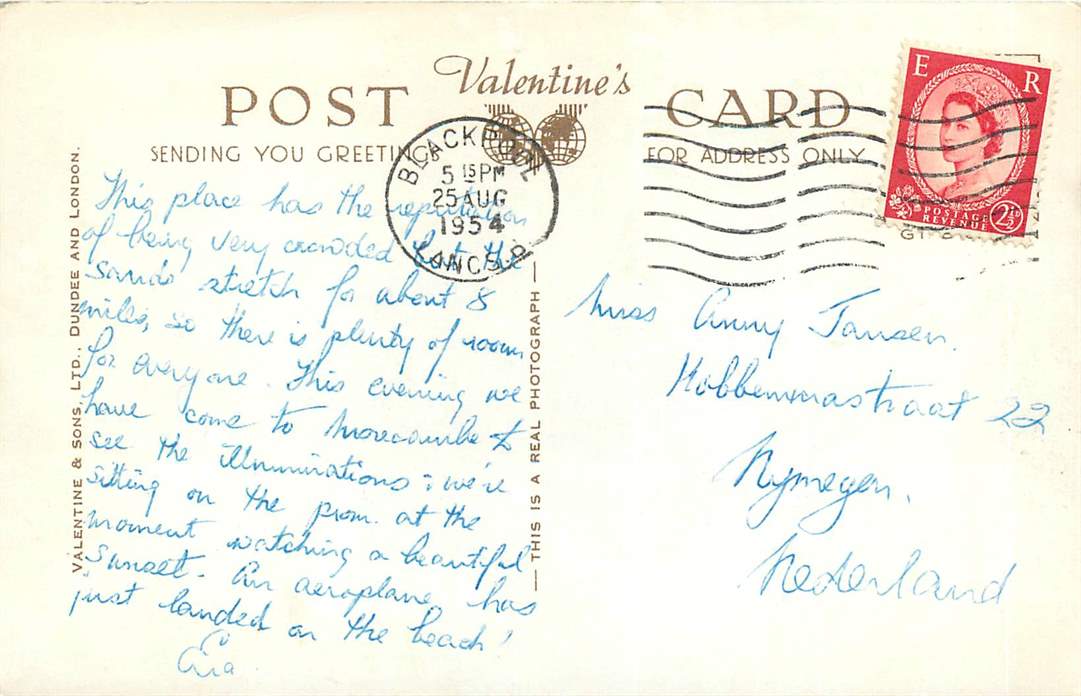 Valentine's
POST CARD
SENDING YOU GREETINGS
FOR ADDRESS ONLY
BLACKPOOL
5 15 PM
25 AUG
1954
LANCS.
E R
POSTAGE
REVENUE
2½D
This place has the reputation
of being very crowded but the
sands stretch for about 8
miles, so there is plenty of room
for everyone. This evening we
have come to Morecambe to
see the illuminations; we're
sitting on the prom. at the
moment watching a beautiful
sunset. An aeroplane has
just landed on the beach!
Miss Anny Jansen.
Hobbemastraat 22
Nymegen.
Nederland
VALENTINE & SONS, LTD., DUNDEE AND LONDON.
THIS IS A REAL PHOTOGRAPH